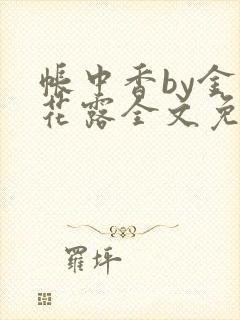 帐中香by金
花露全文免
羅坪